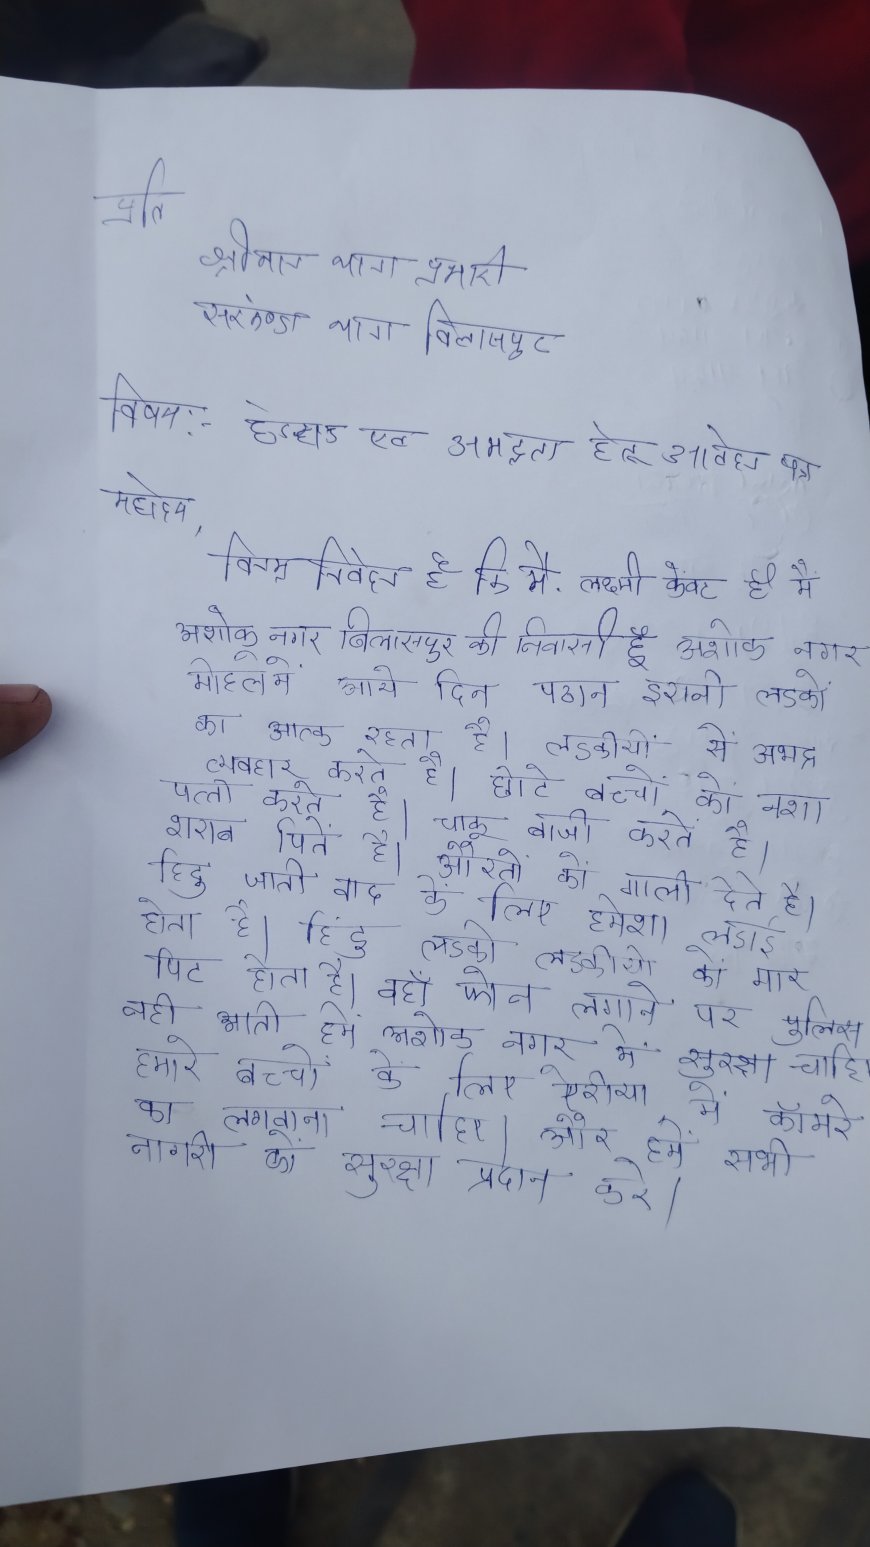 प्रति
श्रीमान थाना प्रभारी
सरकण्डा थाना बिलासपुर
विषय:- छेडछाड एवं अभद्रता हेतु आवेदन पत्र
महोदय,
विनम्र निवेदन है कि मै. लक्ष्मी केंवट हीं मैं
अशोक नगर बिलासपुर की निवासी हूँ अशोक नगर
मोहलेमें आये दिन पठान इरानी लडकों
का आतक रहता है। लडकीयों सें अभद्र
व्यवहार करते है। छोटे बच्चों कों नशा
पत्ती करते है। चाकू बाजी करतें है।
शराब पितें है। औरतों कों गाली देते है।
हिंदु जाती वाद कें लिए हमेशा लडाई
होता है। हिंदु लडको लडकीयो कों मार
पिट होता है। वहाँ फोन लगाने पर पुलिस
नही आती हमें अशोक नगर में सुरक्षा चाहि
हमारे बच्चों कें लिए ऐरीया में कॉमरे
का लगवाना चाहिए। और हमें सभी
नागरी कों सुरक्षा प्रदान करे।